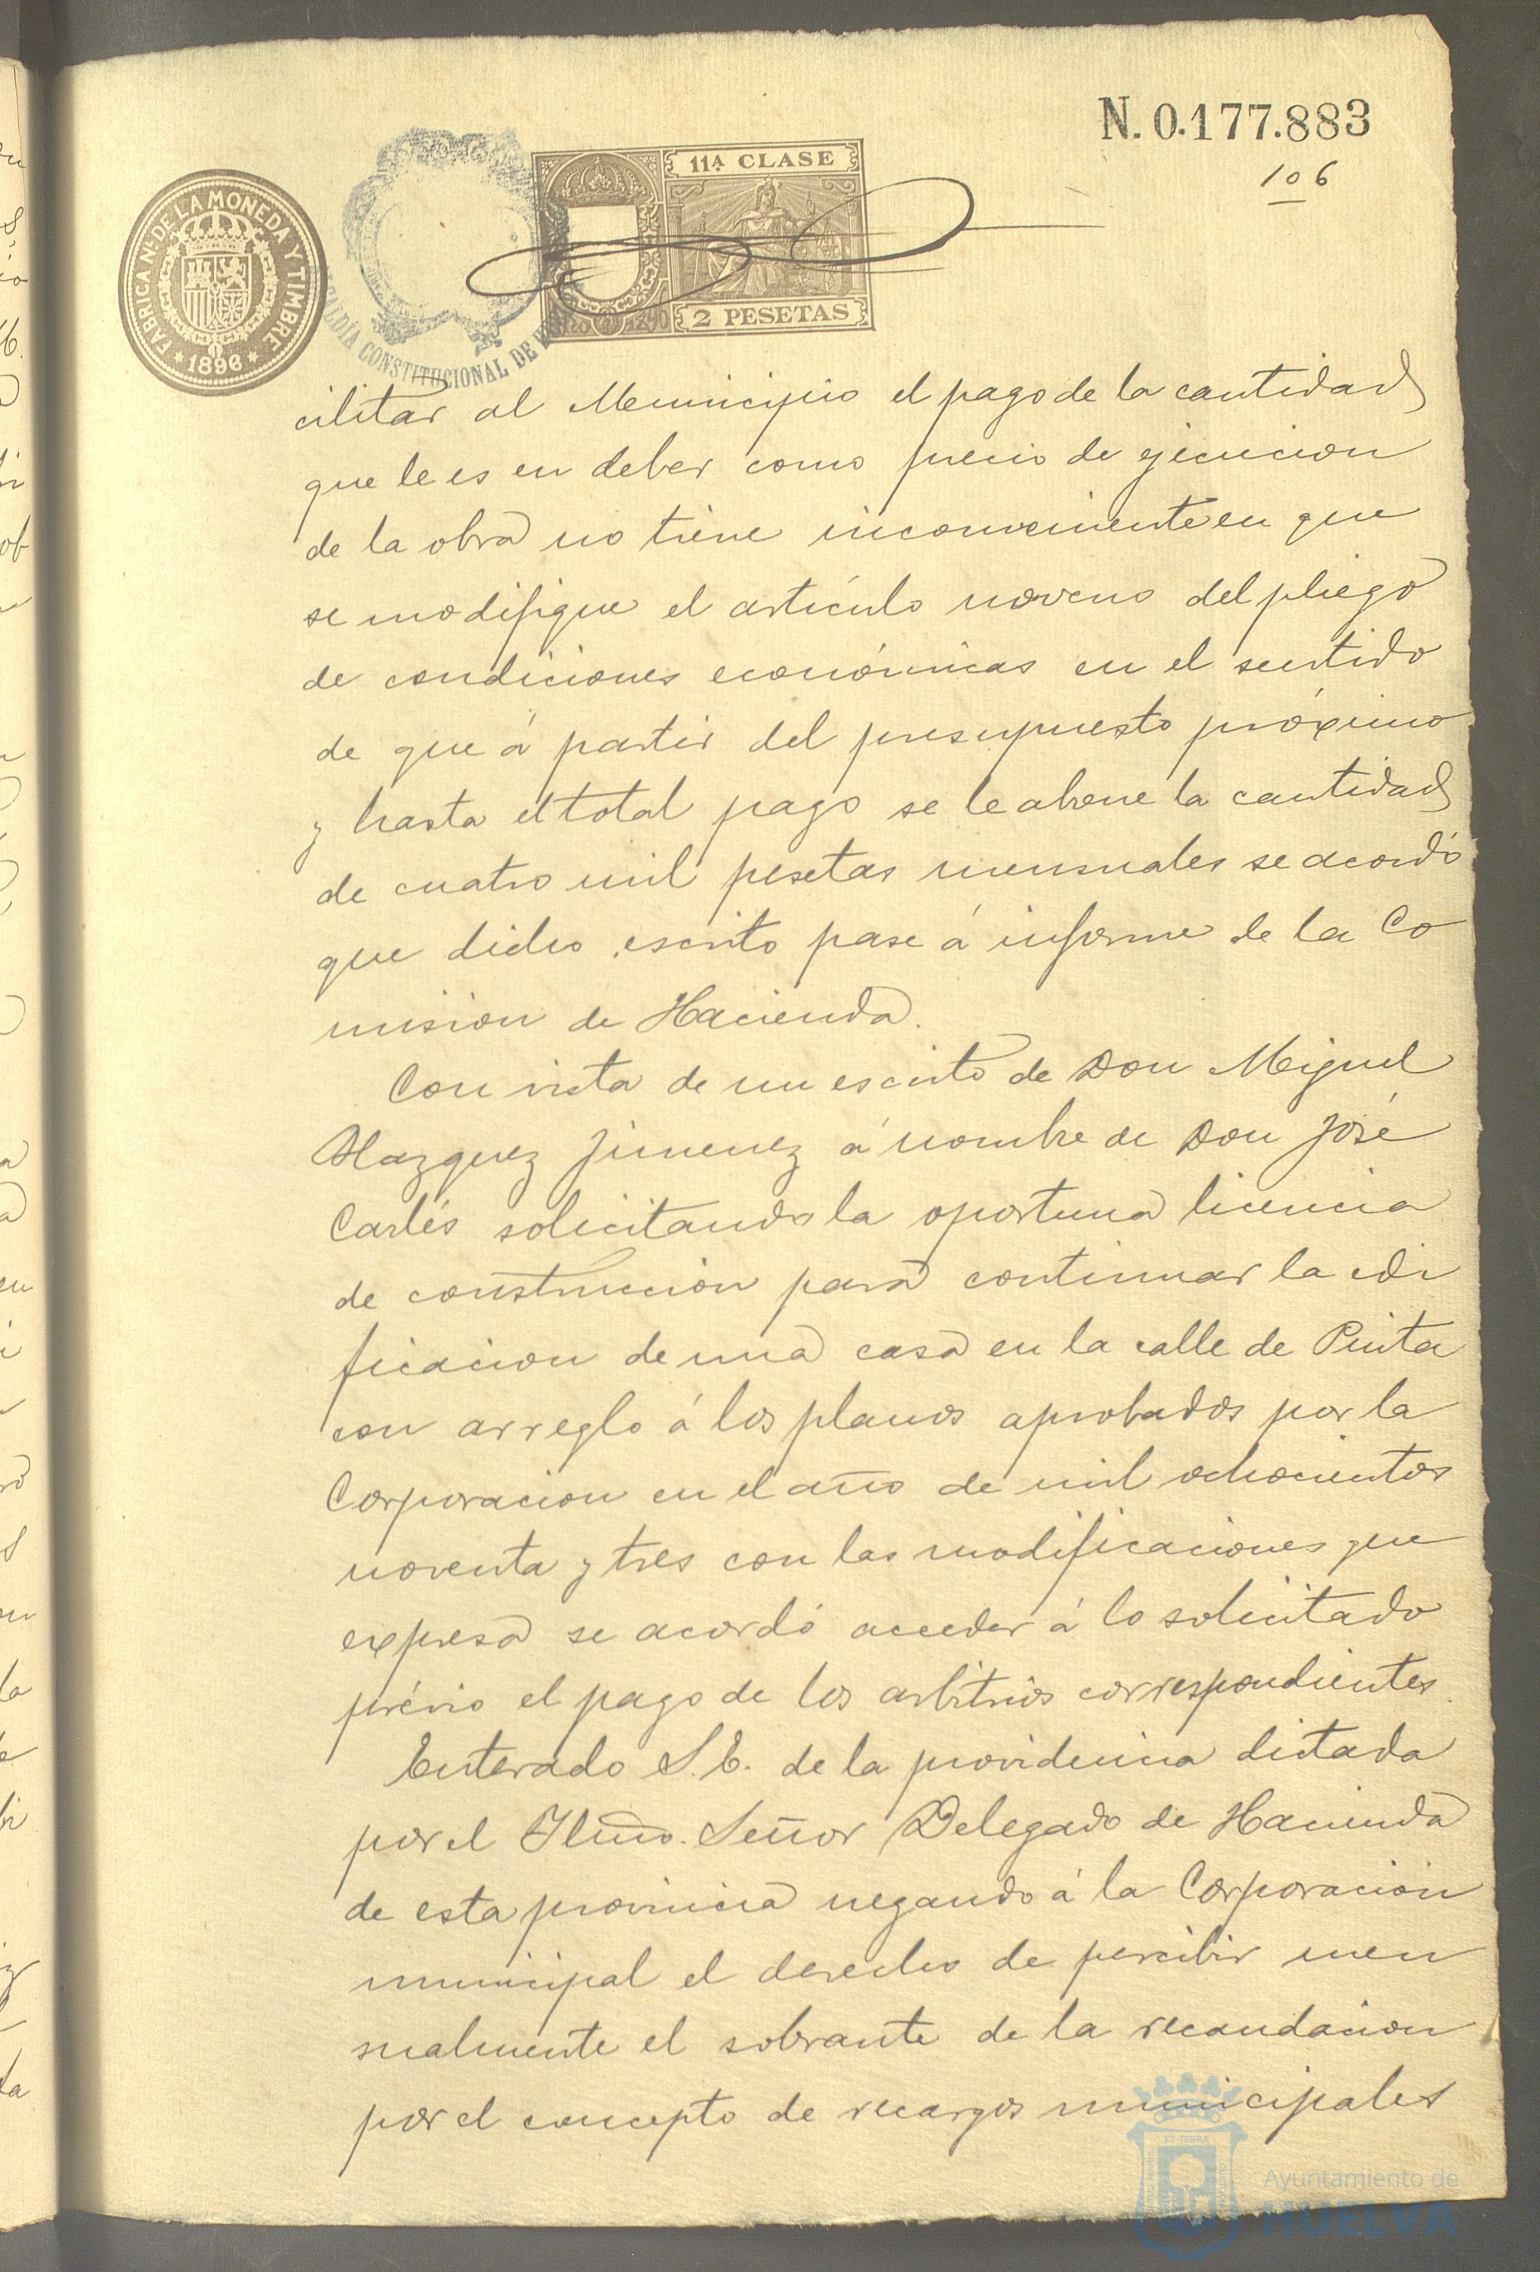 N. 0.177.883
106
11ª CLASE
2 PESETAS
FABRICA Nal DE LA MONEDA Y TIMBRE
* 1896 *
ALCALDÍA CONSTITUCIONAL DE
cilitar al Municipio el pago de la cantidad
que le es en deber como precio de ejecucion
de la obra no tiene inconveniente en que
se modifique el artículo noveno del pliego
de condiciones económicas en el sentido
de que á partir del presupuesto próximo
y hasta el total pago se le abone la cantidad
de cuatro mil pesetas mensuales se acordó
que dicho escrito pase á informe de la Co
mision de Hacienda.
Con vista de un escrito de Don Miguel
Blazquez Jimenez á nombre de Don José
Carlés solicitando la oportuna licencia
de construccion para continuar la edi
ficacion de una casa en la calle de Pinta
con arreglo á los planos aprobados por la
Corporacion en el año de mil ochocientos
noventa y tres con las modificaciones que
expresa se acordó acceder á lo solicitado
prévio el pago de los arbitrios correspondientes.
Enterado S. E. de la providencia dictada
por el Iltmo. Señor Delegado de Hacienda
de esta provincia negando á la Corporacion
municipal el derecho de percibir men
sualmente el sobrante de la recaudacion
por el concepto de recargos municipales
Ayuntamiento de
HUELVA